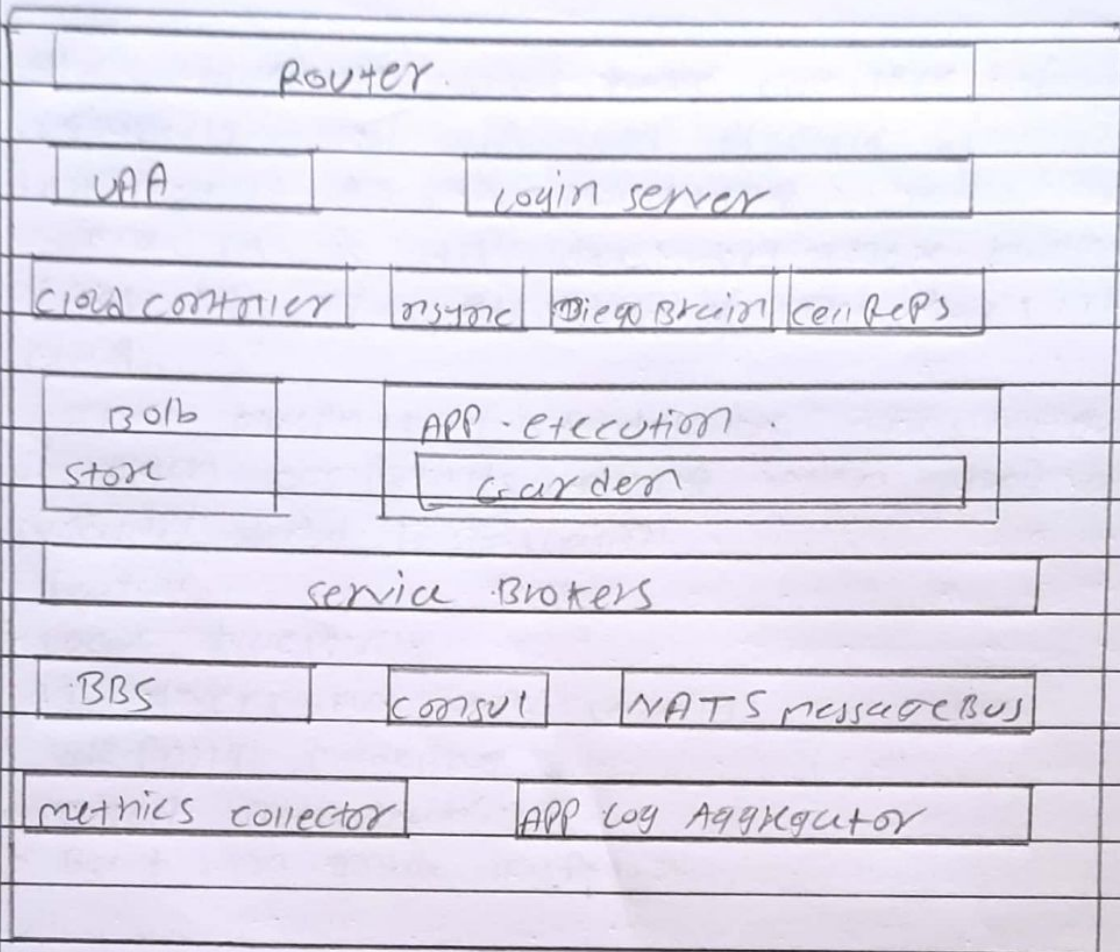 Router.
UAA Login server
Cloud controller nsync Diego Brain Cell Reps
Bolb
store
APP - execution.
Garden
service Brokers
BBS Consul NATS messageBus
metrics collector APP Log Aggregator